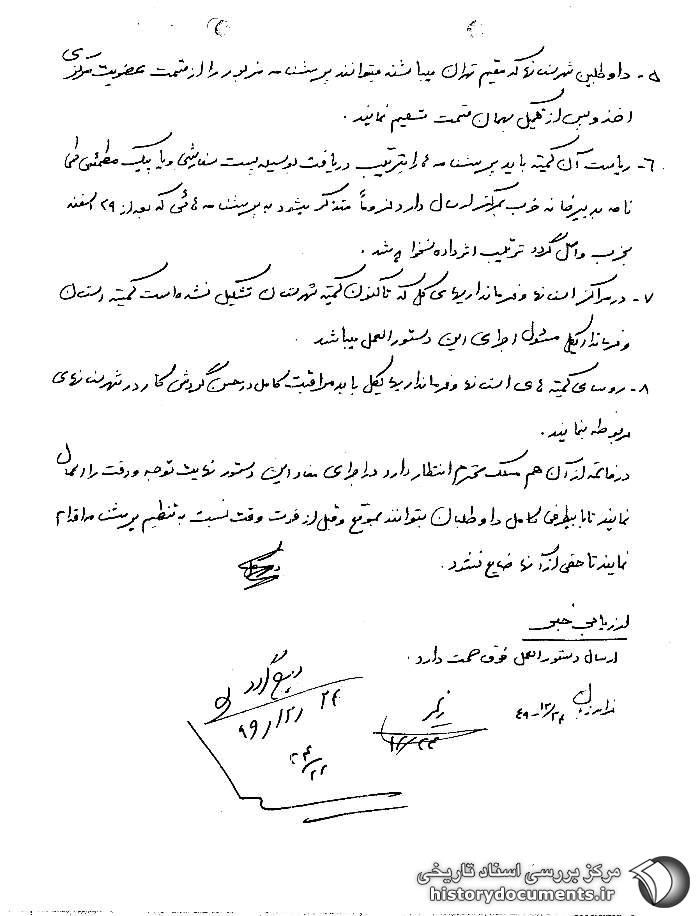 ۵- داوطلبین شهرستانها که مقیم تهران میباشند میتوانند پرسشنامه مزبور را از قسمت عضویت مرکزی
اخذ و پس از تکمیل بهمان قسمت تسلیم نمایند .
۶- ریاست آن کمیته باید پرسشنامه ها را بترتیب دریافت بوسیله پست سفارشی و یا پیک مطمئنی طی
نامه بدبیرخانه حزب بمرکز ارسال دارد لزوماً متذکر میشود به پرسشنامه هائی که بعد از ۲۹ اسفند
بحزب واصل گردد ترتیب اثر داده نخواهد شد .
۷- در مراکز استانها و فرمانداریهای کل که تاکنون کمیته شهرستان تشکیل نشده است کمیته استان
و فرمانداریکل مسئول اجرای این دستورالعمل میباشد .
۸- روسای کمیته های استانها و فرمانداریهایکل باید مراقبت کامل در حسن گردش کار در شهرستانهای
مربوطه بنمایند .
در خاتمه از آن هم مسلک محترم انتظار دارد در اجرای مفاد این دستور نهایت توجه و دقت را اعمال
نمایند تا با بیطرفی کامل داوطلبان بتوانند بموقع و قبل از فوت وقت نسبت به تنظیم پرسشنامه اقدام
نمایند تا حقی از آنها ضایع نشود .
ارزیابی خبر
ارسال دستورالعمل فوق صحت دارد .
۴۹-۱۲/۲۴
۱۲/۲۴
۴۹/۱۲/۲۴
مرکز بررسی اسناد تاریخی
historydocuments.ir